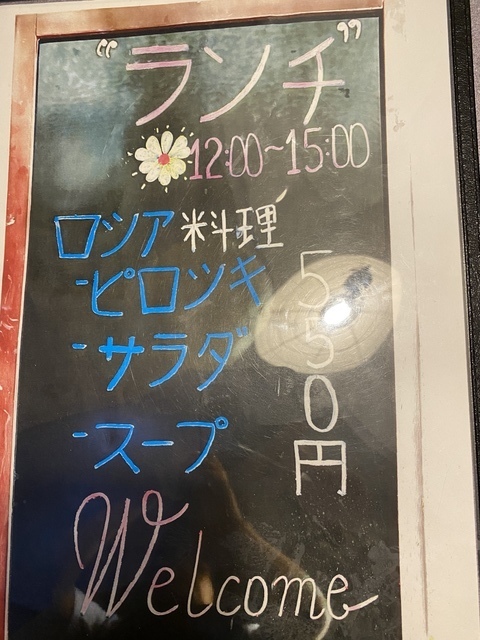 "ランチ"
12:00~15:00
ロシア料理
-ピロツキ
-サラダ
-スープ
550円
Welcome